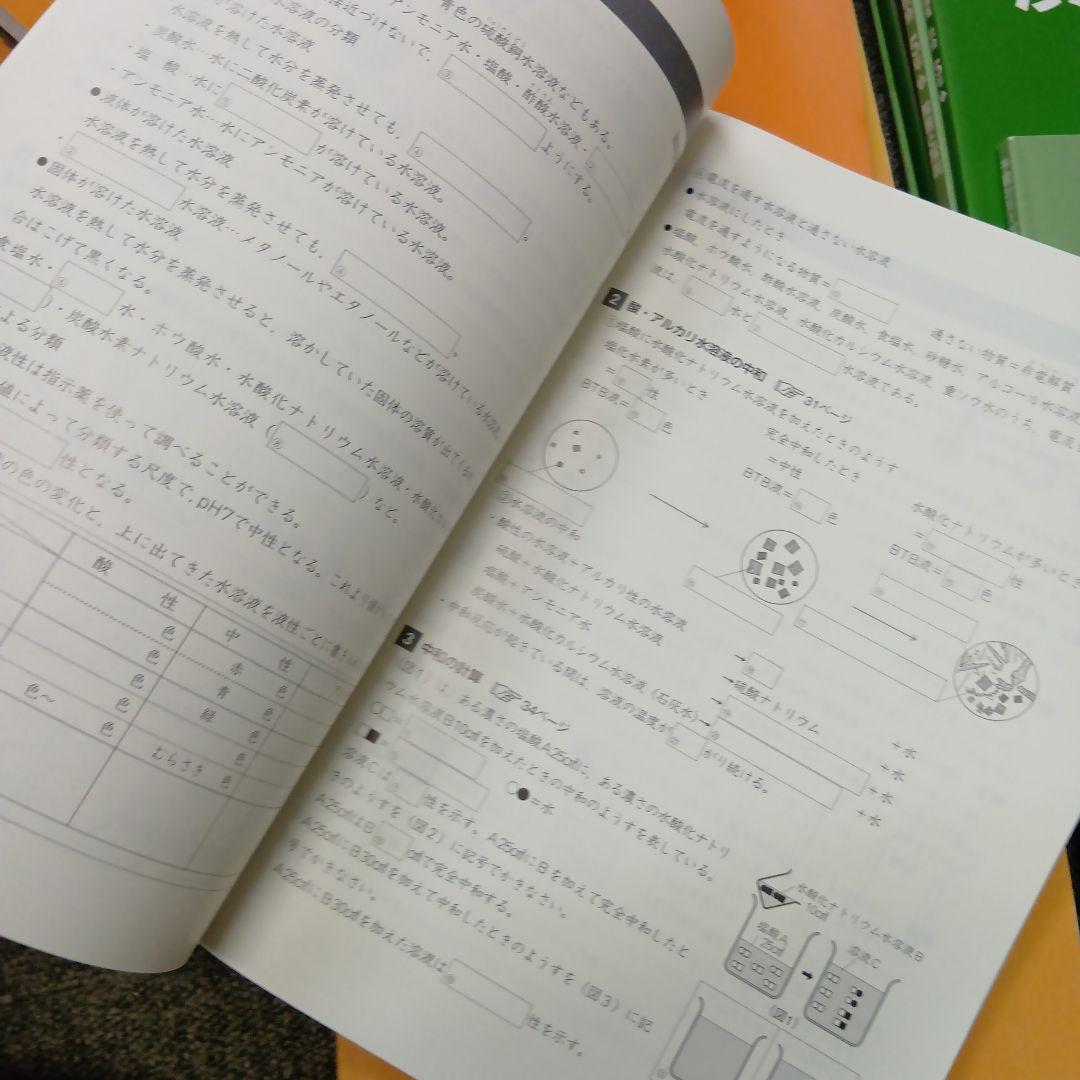 青色の硫酸銅水溶液などもある。
アンモニア水・塩酸・酢酸水溶液・②
近づけないで、③ようにする。
水溶液の分類
が溶けた水溶液
水溶液を熱して水分を蒸発させても、④。
炭酸水…水に二酸化炭素が溶けている水溶液。
塩 酸…水に⑤が溶けている水溶液。
・アンモニア水…水にアンモニアが溶けている水溶液。
●液体が溶けた水溶液
水溶液を熱して水分を蒸発させても、④。
・②水溶液…メタノールやエタノールなどが溶けている水溶液
●固体が溶けた水溶液
水溶液を熱して水分を蒸発させると、溶かしていた固体の溶質が出てくる
合はこげて黒くなる。
食塩水・⑥水・ホウ酸水・水酸化ナトリウム水溶液・水酸化
)・炭酸水素ナトリウム水溶液(⑧)など。
よる分類
液性は指示薬を使って調べることができる。
値によって分類する尺度で、pH7で中性となる。これより値が
性となる。
の色の変化と、上に出てきた水溶液を液性ごとに書き
酸 性
中 性
色
赤 色
色
青 色
色
緑 色
色〜 色
色
むらさき 色
電流を通す水溶液と通さない水溶液
●水溶液にしたとき
電流を通すようになる物質=
通さない物質=非電解質
●塩酸、ホウ酸水、酢酸水溶液、炭酸水、食塩水、砂糖水、アルコール水溶液
水酸化ナトリウム水溶液、水酸化カルシウム水溶液、重ソウ水のうち、電流
液は、水と水溶液である。
2 酸・アルカリ水溶液の中和 31ページ
①塩酸に水酸化ナトリウム水溶液を加えたときのようす
塩化水素が多いとき
=性
BTB液=色
完全中和したとき
=中性
BTB液=色
水酸化ナトリウムが多いとき
=性
BTB液=色
②水溶液の中和
・酸性の水溶液+アルカリ性の水溶液
→ +水
硫酸+水酸化ナトリウム水溶液
→硫酸ナトリウム +水
塩酸+アンモニア水
→ +水
炭酸水+水酸化カルシウム水溶液(石灰水)→ +水
・中和反応が起きている間は、溶液の温度ががり続ける。
3 中和の計算 34ページ
(図1)は、ある濃さの塩酸A25cm³に、ある濃さの水酸化ナトリ
ウム水溶液B10cm³を加えたときの中和のようすを表している。
○□=
●■=
○●=水
溶液Cは性を示す。A25cm³にBを加えて完全中和したと
きのようすを(図2)に記号でかきなさい。
A25cm³はBcm³で完全中和する。
A25cm³にB30cm³を加えて中和したときのようすを(図3)に記
号でかきなさい。
A25cm³にB30cm³を加えた溶液は性を示す。
水酸化ナトリウム水溶液B
10cm³
塩酸A
25cm³
溶液C
(図1)